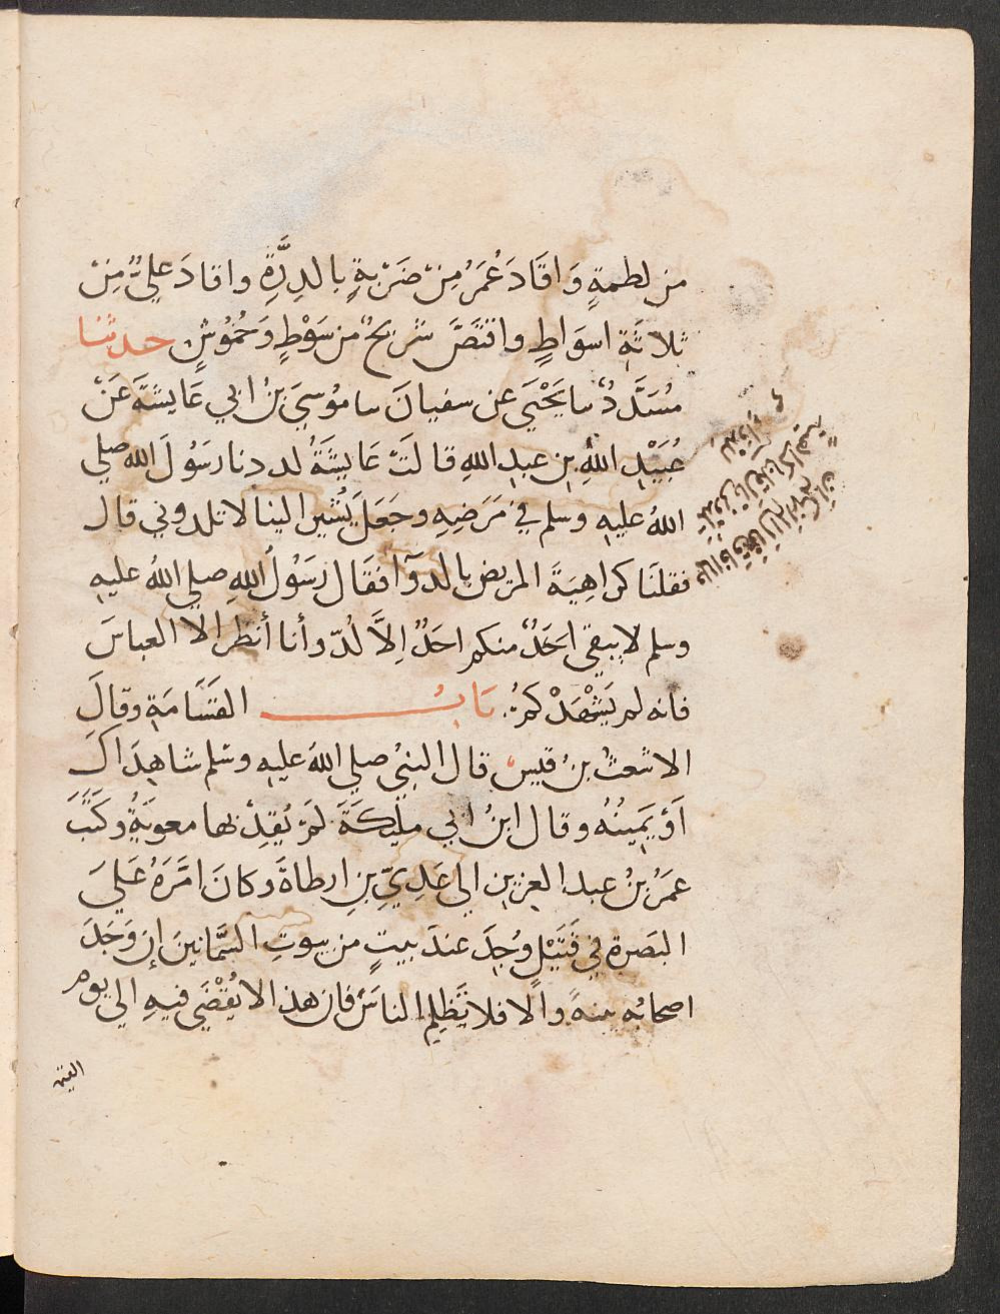 من لطمةٍ وَاقَادَ عُمَرُ مِنْ ضَرْبةٍ بالدِرَّةِ واقادَ عليٌّ مِنْ
ثلاثةِ اسوَاطٍ واقتَصَّ شريحٌ من سَوْطٍ وَخُمُوشٍ حدثنا
مُسَدَّدٌ سا يَحْيَى عن سفيانَ سا مُوسَى بنُ ابي عَايشةَ عَنْ
عُبَيْدِ اللهِ بنِ عبدِ اللهِ قالَتْ عَايشَةُ لددنا رسَوُلَ الله صلي
اللهُ عليهِ وسلم في مَرَضِهِ وجَعَلَ يُشير الينا لا تلدوني قال
فقلنَا كراهِيَةَ المريض بالدوآ افقَال رَسَوُلُ اللهِ صلي اللهُ عليهِ
وسلم لا يبقى احَدٌ منكم احَدٌ اِلاَّ لُدّ وأنا أنظر الا العباسَ
فانه لم يَشْهَدْكمُ. بَابُ القَسَامَةِ وقالَ
الاشعثُ بنُ قيسٍ قال النبيُ صلي اللهَ عليهِ وسَلم شاهِدَاكَ
اَوْ يَمِينُهُ وقال ابنُ ابي مليكَةَ لمَ يُقِدْ بها معوِيَةُ وكَتَبَ
عمَرُ بنُ عبد العزيزِ الي عَدِيِّ بنِ ارطاةَ وكانَ امَّرَهُ عَليَ
البَصرةِ في قَتَيْلٍ وُجِدَ عندَ بيتٍ من بيوتِ السَّمَّانِينَ اِن وَجَدَ
اصحابُه بينةً والا فلا تَظلِمِ الناسَ فان هذا لا يُقْضَى فيهِ الي يومِ
القيٰمة